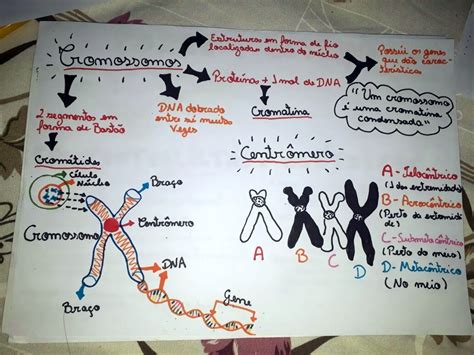 Cromossomos
Estruturas em forma de fio
localizadas dentro do núcleo
Possui os genes
que dão carac-
terísticas
Proteínas + 1 mol de DNA
Cromatina
"Um cromossomo
é uma cromatina
condensada"
2 segmentos em
forma de Bastão
DNA dobrado
entre si muitas
vezes
Cromátides
Célula
Núcleo
Cromossomo
Braço
Centrômero
DNA
Gene
Braço
Centrômero
A
B
C
D
A - Telocêntrico
(1 das extremidades)
B - Acrocêntrico
(Perto da extremida
de)
C - Submetacêntrico
(Perto do meio)
D - Metacêntrico
(No meio)